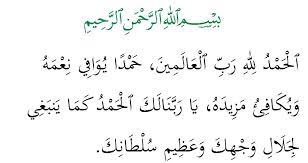 بِسْمِ اللهِ الرَّحْمَنِ الرَّحِيْمِ
الْحَمْدُ لِلهِ رَبِّ الْعَالَمِينَ، حَمْدًا يُوَافِي نِعَمَهُ
وَيُكَافِئُ مَزِيدَهُ، يَا رَبَّنَالَكَ الْحَمْدُ كَمَا يَنْبَغِي
لِجَلَالِ وَجْهِكَ وَعَظِيمِ سُلْطَانِكَ.